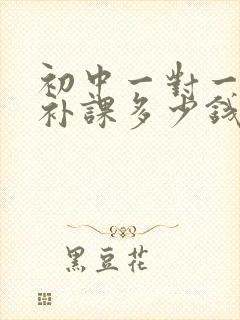 初中一對一
補課多少錢
黑豆花